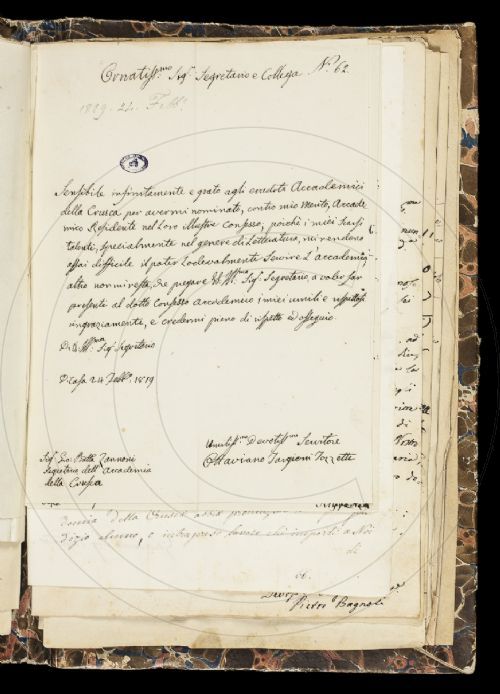 Ornatiss.mo Sig.r Segretario e Collega N.o 62.
1819. 24. Febb.o
Sensibile infinitamente e grato agli eruditi Accademici
della Crusca per avermi nominato, contro mio Merito, Accade
mico Residente nel Loro Illustre Consesso, poichè i miei scarsi
talenti, specialmente nel genere di Letteratura, mi rendono
assai difficile il poter lodevolmente servire l'accademia
altro non mi resta, se pregare Sig.r Segretario, a voler far
presente al dotto Consesso Accademico i miei umili e rispettosi
ringraziamenti, e credermi pieno di rispetto ed ossequio.
Sig.r Segretario
Di Casa 24 Febb.o 1819
Umiliss.mo Devotiss.mo Servitore
Ottaviano Targioni Tozzetti
Sig.r Gio. Batta Zannoni
Segretario dell'Accademia
della Crusca
demia della Crusca
dizio alcuno, o intrapresa lavoro che importi a Noi
di
Pietro Bagnoli